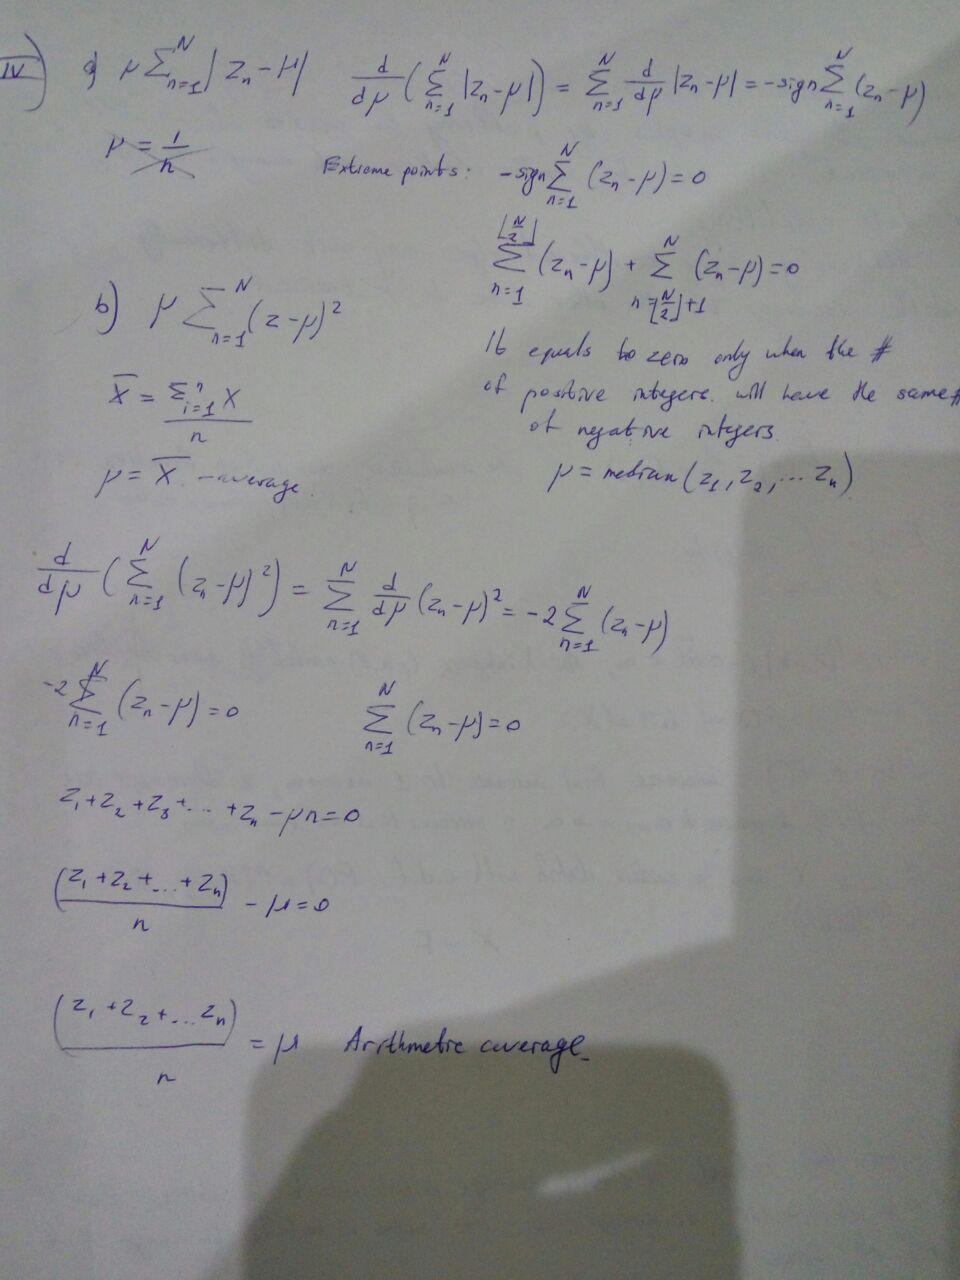 IV) a) μ Σ_{n=1}^{N} |z_n - μ|
d/dμ ( Σ_{n=1}^{N} |z_n - μ| ) = Σ_{n=1}^{N} d/dμ |z_n - μ| = -sign Σ_{n=1}^{N} (z_n - μ)
μ = 1/n
Extreme points: -sign Σ_{n=1}^{N} (z_n - μ) = 0
Σ_{n=1}^{⌊N/2⌋} (z_n - μ) + Σ_{n=⌊N/2⌋+1}^{N} (z_n - μ) = 0
It equals to zero only when the #
of positive integers will have the same #
of negative integers.
μ = median (z_1, z_2, ... z_n)
b) μ Σ_{n=1}^{N} (z - μ)^2
X̄ = Σ_{i=1}^{n} X / n
μ = X̄ - average.
d/dμ ( Σ_{n=1}^{N} (z_n - μ)^2 ) = Σ_{n=1}^{N} d/dμ (z_n - μ)^2 = -2 Σ_{n=1}^{N} (z_n - μ)
-2 Σ_{n=1}^{N} (z_n - μ) = 0
Σ_{n=1}^{N} (z_n - μ) = 0
z_1 + z_2 + z_3 + ... + z_n - μn = 0
(z_1 + z_2 + ... + z_n) / n - μ = 0
(z_1 + z_2 + ... z_n) / n = μ Arithmetic average